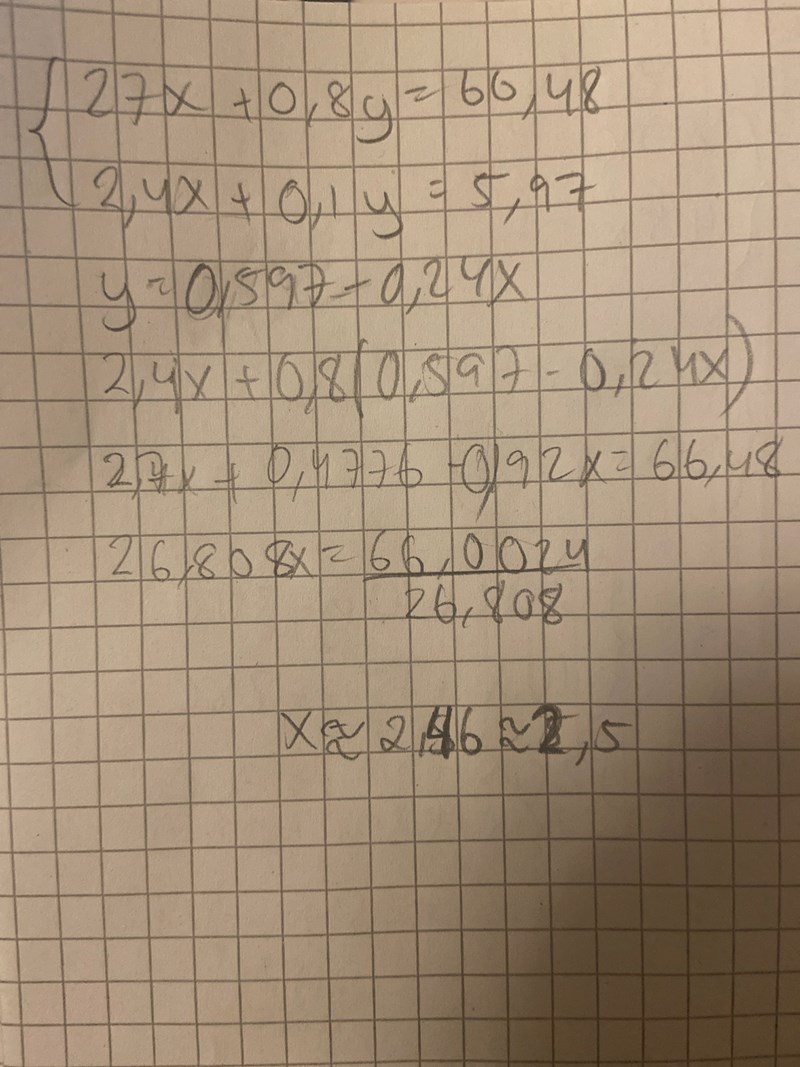 27x + 0,8y = 66,48
2,4x + 0,1y = 5,97
y = 0,597 - 0,24x
2,4x + 0,8(0,597 - 0,24x)
2,7x + 0,4776 - 0,92x = 66,48
26,808x = 66,0024
26,808
x ≈ 2,46 ≈ 2,5